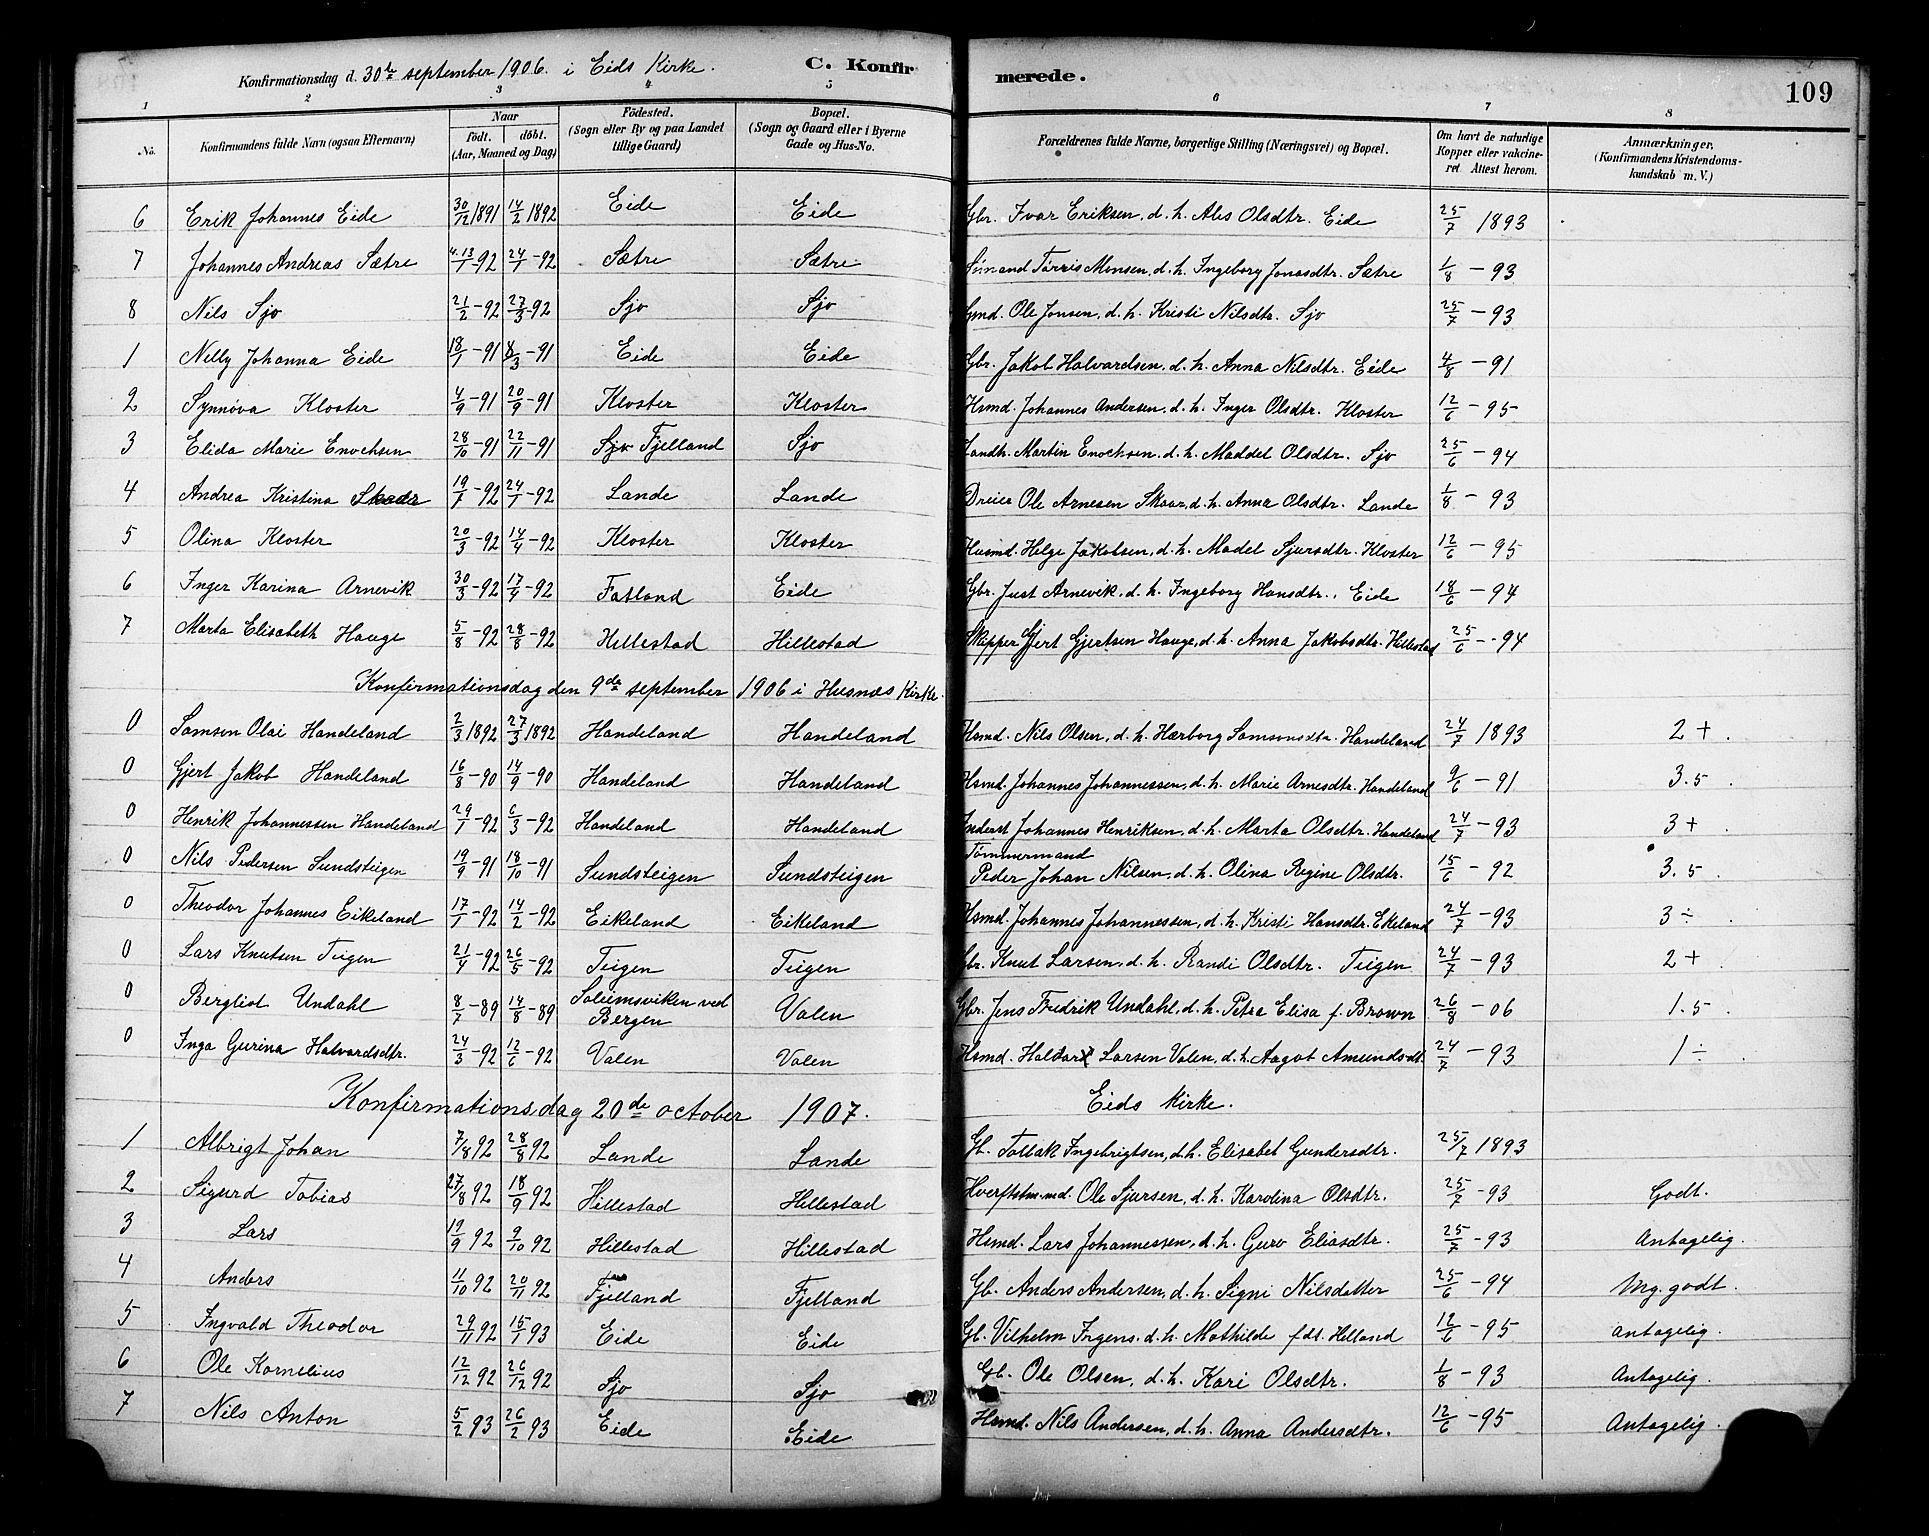 Konfirmationsdag d. 30te september 1906. i Eids Kirke. C. Konfirmerede. 109
1 2 3 4 5 6 7 8
No. Konfirmandens fulde Navn (ogsaa Efternavn) Naar födt. döbt. (Aar, Maaned og Dag) Födested. (Sogn eller By og paa Landet tillige Gaard) Bopæl. (Sogn og Gaard eller i Byerne Gade og Hus-No. Forældrenes fulde Navne, borgerlige Stilling (Næringsvei) og Bopæl. Om havt de naturlige Kopper eller vakcineret. Attest herom. Anmærkninger, (Konfirmandens Kristendomskundskab m. V.)
6 Erik Johannes Eide 30/12 1891 14/2 1892 Eide Eide Gbr. Ivar Eriksen, d. h. Ales Olsdtr. Eide 25/7 1893
7 Johannes Andreas Sætre 13/1 -92 24/1 -92 Sætre Sætre Sömand Törris Monsen, d. h. Ingeborg Jonasdtr. Sætre 1/8 - 93
8 Nils Sjo 21/2 -92 27/3 -92 Sjo Sjo Smd. Ole Jonsen, d. h. Kristi Nilsdtr. Sjo 25/7 - 93
1 Nelly Johanna Eide 18/1 -91 8/3 -91 Eide Eide Gbr. Jakob Halvardsen, d. h. Anna Nilsdtr. Eide 4/8 - 91
2 Synnöva Kloster 4/9 -91 20/9 -91 Kloster Kloster Hsmd. Johannes Andersen, d. h. Inger Olsdtr. Kloster 12/6 - 95
3 Elida Marie Enochsen 28/10 -91 22/11 -91 Sjo Fjelland Sjo Landh. Martin Enochsen, d. h. Maddel Olsdtr. Sjo 25/6 - 94
4 Andrea Kristina Skaar 19/1 -92 24/1 -92 Lande Lande Dreier Ole Arnesen Skaar, d. h. Anna Olsdtr. Lande 1/8 - 93
5 Olina Kloster 20/3 -92 14/4 -92 Kloster Kloster Husmd. Helge Jakobsen, d. h. Madel Sjursdtr. Kloster 12/6 - 95
6 Inger Karina Arnevik 30/3 -92 17/4 -92 Fatland Eide Gbr. Just Arnevik, d. h. Ingeborg Hansdtr. Eide 18/6 - 94
7 Marta Elisabeth Hauge 5/8 -92 28/8 -92 Hillestad Hillestad Skipper Gjert Gjertsen Hauge, d. h. Anna Jakobsdtr. Hillestad 25/6 - 94
Konfirmationsdag den 9de september 1906 i Husnæs Kirke.
0 Samson Olai Handeland 2/3 1892 27/3 1892 Handeland Handeland Hsmd. Nils Olsen, d. h. Hærborg Samsonsdtr. Handeland 24/7 1893 2 +.
0 Gjert Jakob Handeland 16/8 -90 14/9 -90 Handeland Handeland Hsmd. Johannes Johannessen, d. h. Marie Arnesdtr. Handeland 9/6 - 91 3.5
0 Henrik Johannessen Handeland 29/1 -92 6/3 -92 Handeland Handeland Inderst Johannes Henriksen, d. h. Marta Olsdtr. Handeland 24/7 - 93 3 +
0 Nils Pedersen Sundsteigen 19/9 -91 18/10 -91 Sundsteigen Sundsteigen Tömmermand Peder Johan Nilsen, d. h. Olina Regine Olsdtr. 15/6 - 92 3.5
0 Theodor Johannes Eikeland 17/1 -92 14/2 -92 Eikeland Eikeland Hsmd. Johannes Johannessen, d. h. Kristi Hansdtr. Ekeland 24/7 - 93 3 ÷
0 Lars Knutsen Teigen 21/4 -92 26/5 -92 Teigen Teigen Gbr. Knut Larsen, d. h. Randi Olsdtr. Teigen 24/7 - 93 2 +
0 Bergliot Undahl 8/7 -89 14/8 -89 Soleimsviken ved Bergen Valen Gbr. Jens Fredrik Undahl, d. h. Petra Elisa f. Brown 26/8 - 06 1.5
0 Inga Gurina Halvardsdtr. 24/3 -92 12/6 -92 Valen Valen Hsmd. Haldor Larsen Valen, d. h. Aagot Amundsdt. 24/7 - 93 1 ÷
Konfirmationsdag 20de october 1907. Eids Kirke.
1 Albrigt Johan 7/8 92 28/8 92 Lande Lande Gb. Tollak Ingebrigtsen, d. h. Elisabet Gundersdtr. 25/7 1893
2 Sigurd Tobias 27/8 92 18/9 92 Hillestad Hillestad Ole Sjursen, d. h. Karolina Olsdtr. 25/7 - 93 Godt.
3 Lars 19/9 92 9/10 92 Hillestad Hillestad Hsmd. Lars Johannessen, d. h. Guro Eliasdtr. 25/7 - 93 Antagelig.
4 Anders 11/10 92 20/11 92 Fjelland Fjelland Gb. Anders Andersen, d. h. Signi Nilsdatter 25/6 - 94 Mg. godt.
5 Ingvald Theodor 29/11 92 15/1 93 Eide Eide Gb. Vilhelm Irgens. d. h. Mathilde fdt. Helland 12/6 - 95 antagelig.
6 Ole Kornelius 12/12 92 26/12 92 Sjo Sjo Gb. Ole Olsen, d. h. Kari Olsdtr. 1/8 - 93 Antagelig.
7 Nils Anton 5/2 93 26/2 93 Eide Eide Hsmd. Nils Andersen, d. h. Anna Andersdtr. 12/6 - 95 Antagelig.